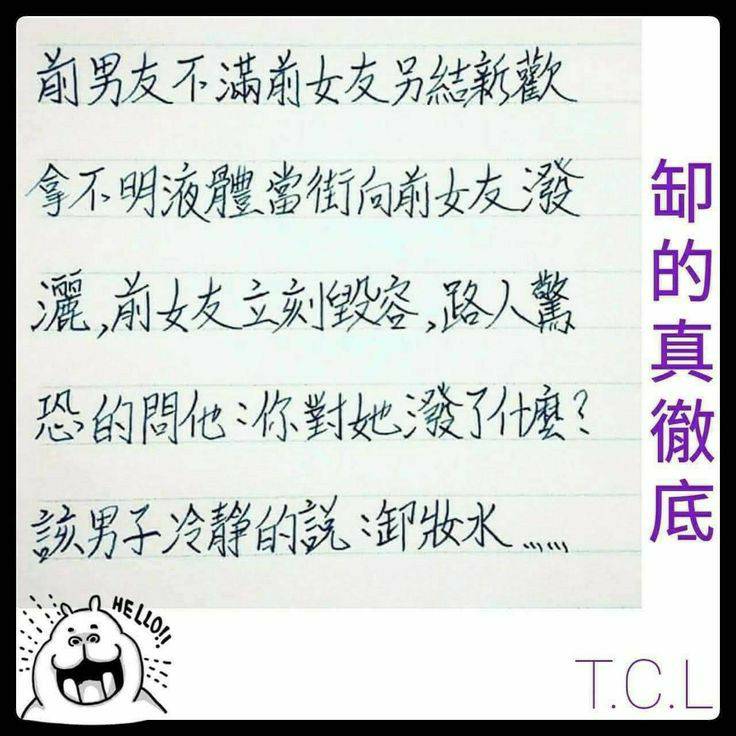 前男友不滿前女友另結新歡
拿不明液體當街向前女友潑
灑,前女友立刻毀容,路人驚
恐的問他:你對她潑了什麼?
該男子冷靜的說:卸妝水......
卸的真徹底
HELLO!!
T.C.L